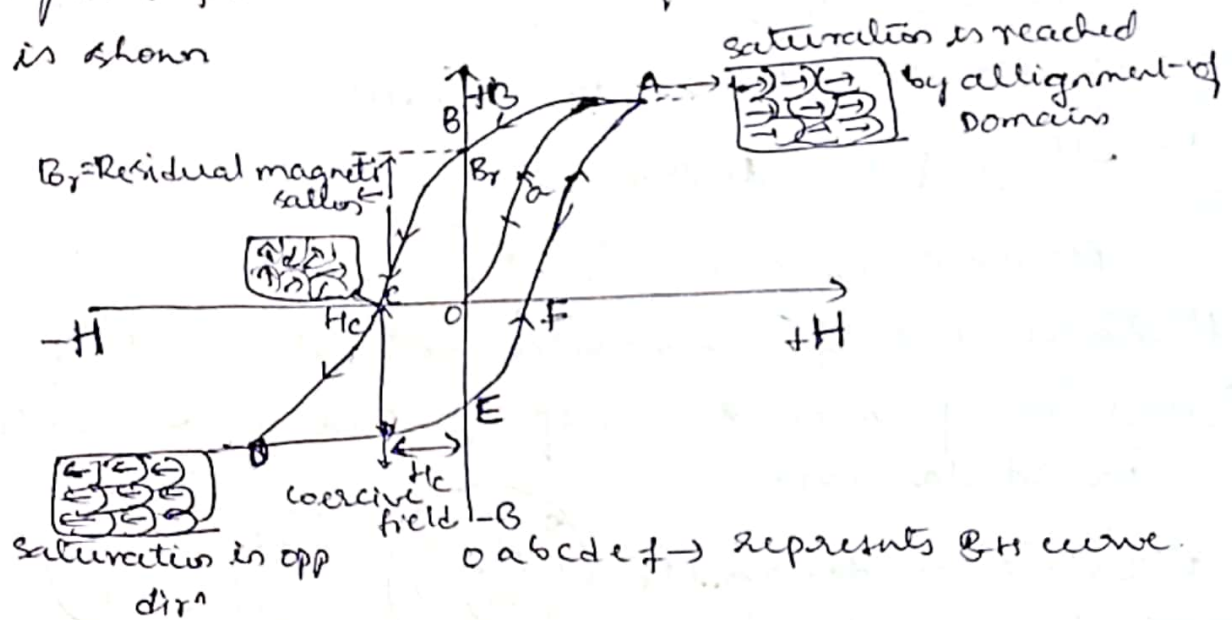 is shown
saturation is reached
by allignment of
Domains
A
+B
B
Br=Residual magneti
sation
Br
a
C
Hc
O
F
-H
+H
E
D
Hc
coercive
field
-B
saturation in opp
dirⁿ
o a b c d e f → represents BH curve.